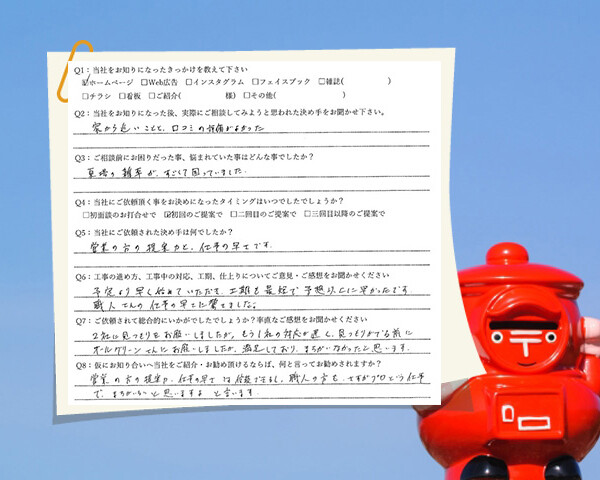 Q1：当社をお知りになったきっかけを教えて下さい
☑ホームページ □Web広告 □インスタグラム □フェイスブック □雑誌( )
□チラシ □看板 □ご紹介( 様) □その他( )
Q2：当社をお知りになった後、実際にご相談してみようと思われた決め手をお聞かせ下さい。
家から近いことと、口コミの評価がよかった
Q3：ご相談前にお困りだった事、悩まれていた事はどんな事でしたか？
夏場の雑草がすごくて困っていました。
Q4：当社にご依頼頂く事をお決めになったタイミングはいつでしたでしょうか？
□初面談のお打合せで ☑初回のご提案で □二回目のご提案で □三回目以降のご提案で
Q5：当社にご依頼された決め手は何でしたか？
営業の方の提案力と、仕事の早さです。
Q6：工事の進め方、工事中の対応、工期、仕上りについてご意見・ご感想をお聞かせください
予定より早く始めていただき、工期も最短で予想以上に早かったです。
職人さんの仕事の早さに驚きました。
Q7：ご依頼されて総合的にいかがでしたでしょうか？率直なご感想をお聞かせください
2社に見つもりをお願いしましたが、もう1社の対応が遅く、見つもりがでる前に
オールグリーンさんにお願いしましたが、満足しており、まちがいなかったと思います。
Q8：仮にお知り合いへ当社をご紹介・お勧め頂けるならば、何と言ってお勧めされますか？
営業の方の提案力、仕事の早さは信頼できるし、職人の方も、さすがプロという仕事
で、まちがいないと思いますよ と言います。